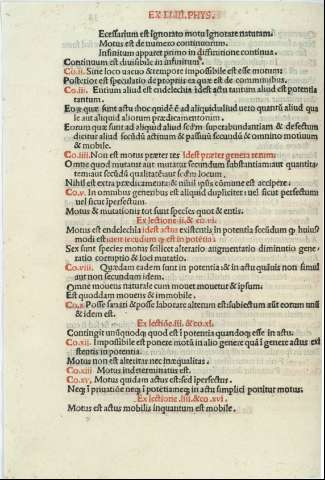 EX LI.III. PHYS.
Ecessarium est ignorato motu ignorare naturam.
Motus est de numero continuorum.
Infinitum apparet primo in diffinitione continua.
Continuum est diuisibile in infinitum.
Co.ii. Sine loco uacuo & tempore impossibile est esse motum
Posterior est speculatio de propriis ex quæ est de communibus.
Co.iii. Entium aliud est endelechia idest actu tantum aliud est potentia
tantum.
Eoꝝ quæ sunt actu hoc quidē ē ad aliquid aliud uero quantū aliud qua
le aut aliquid aliorum prædicamentorum.
Eorum quæ sunt ad aliquid aliud secūm superabundantiam & defectum
dicitur aliud secūdū actiuum & passiuū secūdū & omnino motiuum
& mobile.
Co.iiii. Non est motus præter res idest præter genera rerum.
Omne quod mutatur aut mutatur secūdum substantiam: aut quantita
tem: aut secūdū qualitatē: aut secūm locum.
Nihil est extra prædicamenta: & nihil ipsis cōmune est accipere.
Co.v. In omnibus generibus est aliquid dupliciter: uel sicut perfectum
uel sicut īperfectum.
Motus & mutationis tot sunt species quot & entis.
Ex lectione .ii. & co.vi.
Motus est endelechia idest actus existentis in potentia secūdum ꝙ huius
modi est idest secundum ꝙ est in potētia.
Sex sunt species motus scilicet alteratio augmentatio diminutio gene
ratio corruptio & loci mutatio.
Co.viii. Quædam eadem sunt in potentia & in actu quāuis non simul
aut non secundum idem.
Omne mouens naturale cum mouet mouetur & ipsum.
Est quoddam mouens & immobile.
Co.x. Posse sanari & posse laborare alterum est: subiectum aūt eorum unū
& idem est.
Ex lectiōe .iii. & co.xi.
Contingit unūqdꝙ quod est ī potentia quandoqꝫ esse in actu.
Co.xii. Impossibile est ponere motū in alio genere quā ī genere actus exi
stentis in potentia.
Motus non est alteritas nec inæqualitas.
Co.xiii Motus indeterminatus est.
Co.xv. Motus quidam actus est: sed īperfectus.
Neqꝫ ī priuatiōe neqꝫ ī potētia: neqꝫ in actu simplici ponitur motus.
Ex lectione .iiii. & co.xvi.
Motus est actus mobilis inquantum est mobile.